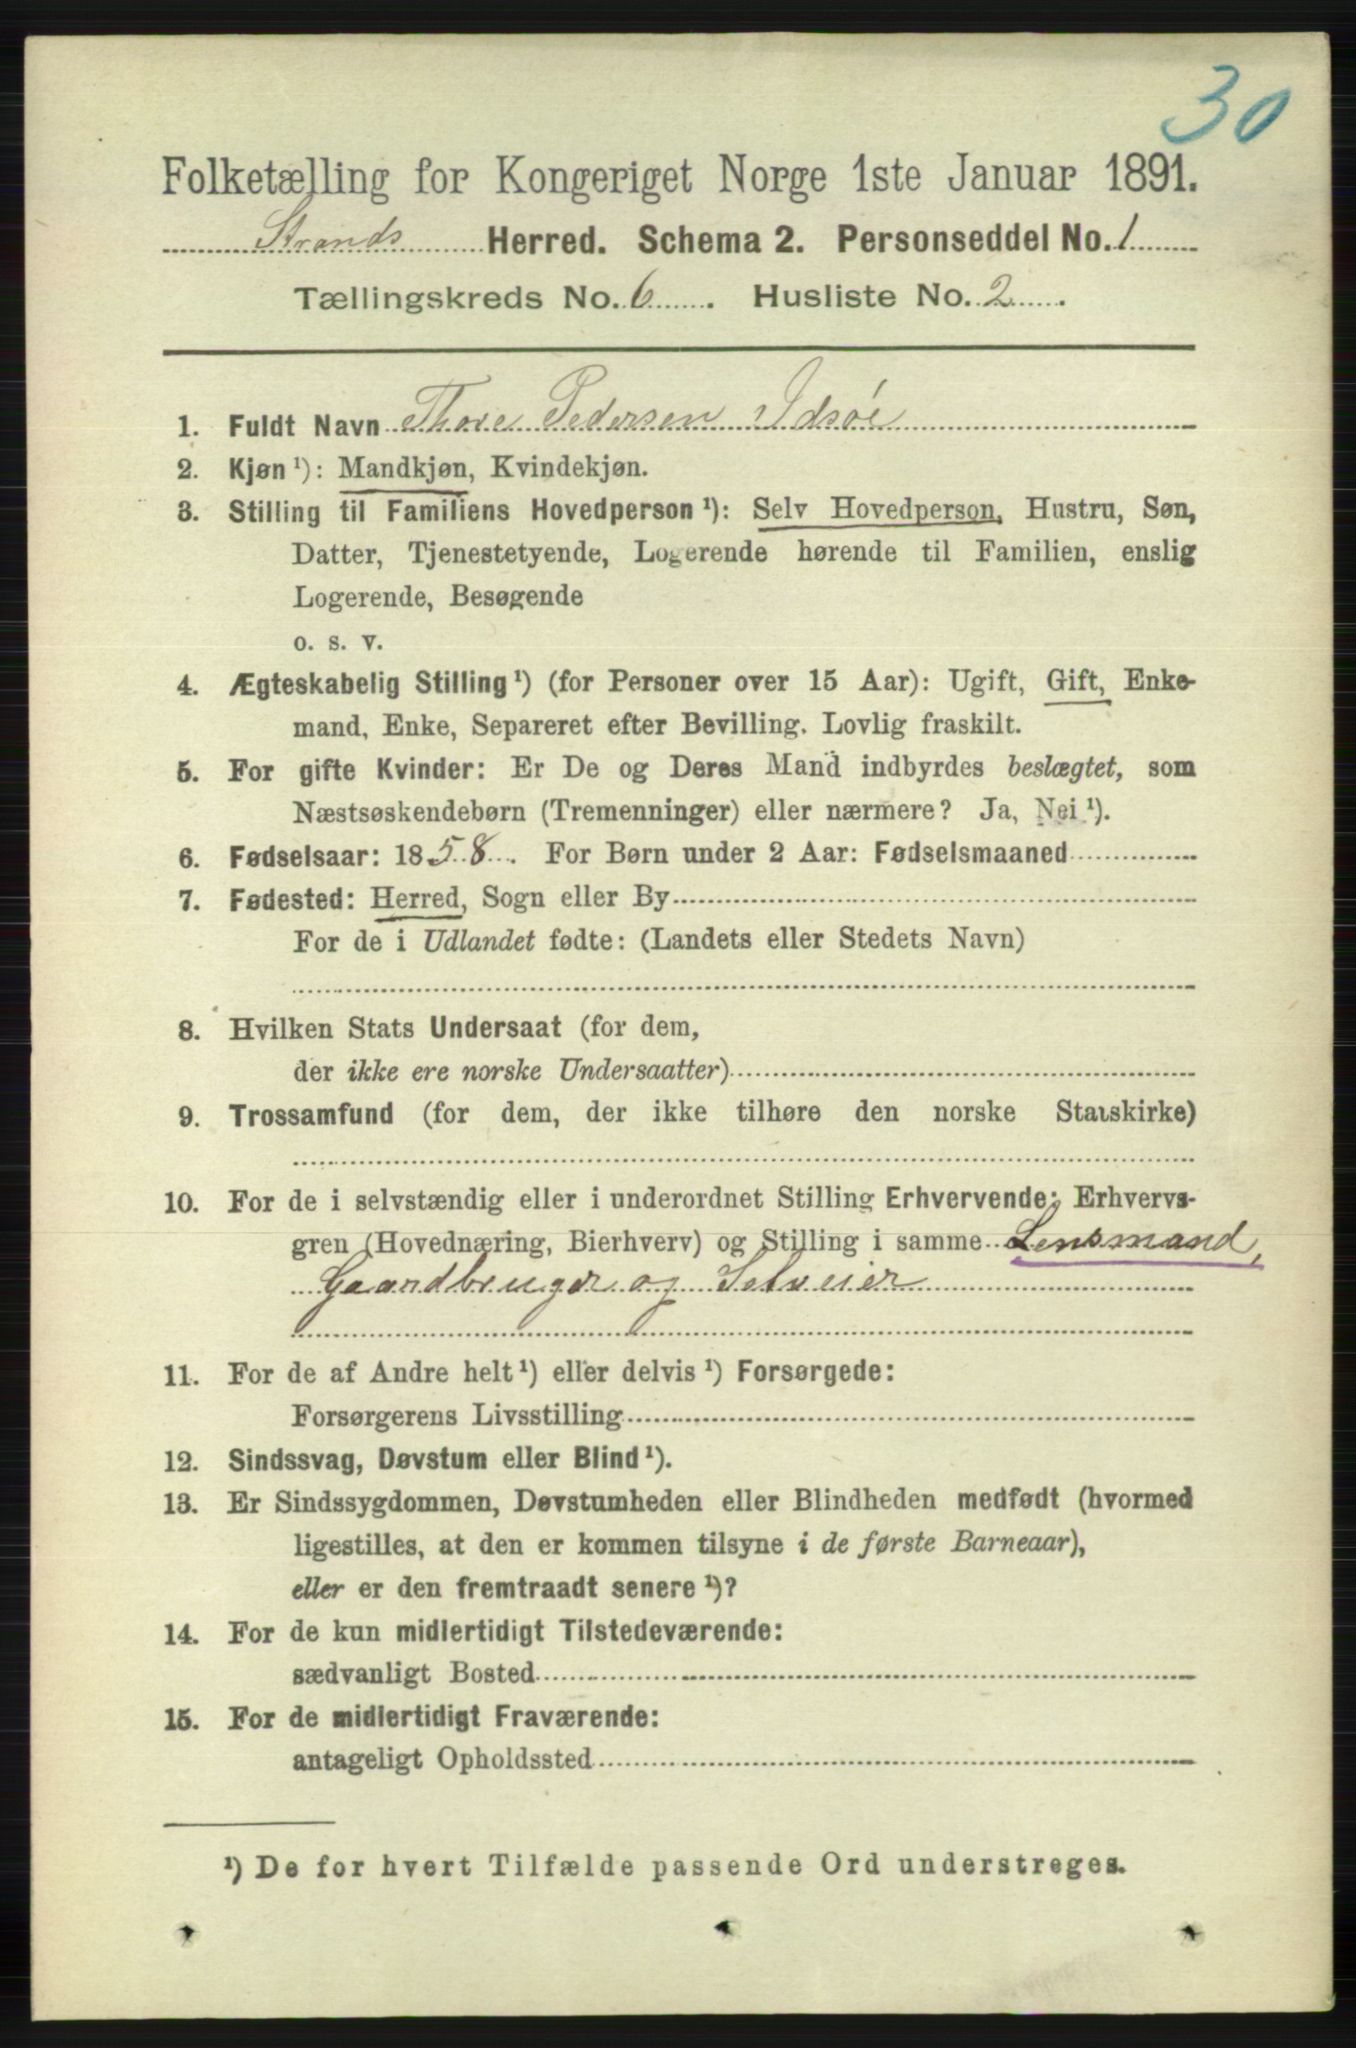 30
Folketælling for Kongeriget Norge 1ste Januar 1891.
Strands Herred. Schema 2. Personseddel No. 1
Tællingskreds No. 6. Husliste No. 2.
1. Fuldt Navn Thore Pedersen Idsøe
2. Kjøn ¹): Mandkjøn, Kvindekjøn.
3. Stilling til Familiens Hovedperson ¹): Selv Hovedperson, Hustru, Søn,
Datter, Tjenestetyende, Logerende hørende til Familien, enslig
Logerende, Besøgende
o. s. v.
4. Ægteskabelig Stilling ¹) (for Personer over 15 Aar): Ugift, Gift, Enke-
mand, Enke, Separeret efter Bevilling. Lovlig fraskilt.
5. For gifte Kvinder: Er De og Deres Mand indbyrdes beslægtet, som
Næstsøskendebørn (Tremenninger) eller nærmere? Ja, Nei ¹).
6. Fødselsaar: 1858. For Børn under 2 Aar: Fødselsmaaned
7. Fødested: Herred, Sogn eller By
For de i Udlandet fødte: (Landets eller Stedets Navn)
8. Hvilken Stats Undersaat (for dem,
der ikke ere norske Undersaatter)
9. Trossamfund (for dem, der ikke tilhøre den norske Statskirke)
10. For de i selvstændig eller i underordnet Stilling Erhvervende: Erhvervs-
gren (Hovednæring, Bierhverv) og Stilling i samme Lensmand,
Gaardbruger og Selveier
11. For de af Andre helt ¹) eller delvis ¹) Forsørgede:
Forsørgerens Livsstilling
12. Sindssvag, Døvstum eller Blind ¹).
13. Er Sindssygdommen, Døvstumheden eller Blindheden medfødt (hvormed
ligestilles, at den er kommen tilsyne i de første Barneaar),
eller er den fremtraadt senere ¹)?
14. For de kun midlertidigt Tilstedeværende:
sædvanligt Bosted
15. For de midlertidigt Fraværende:
antageligt Opholdssted
¹) De for hvert Tilfælde passende Ord understreges.